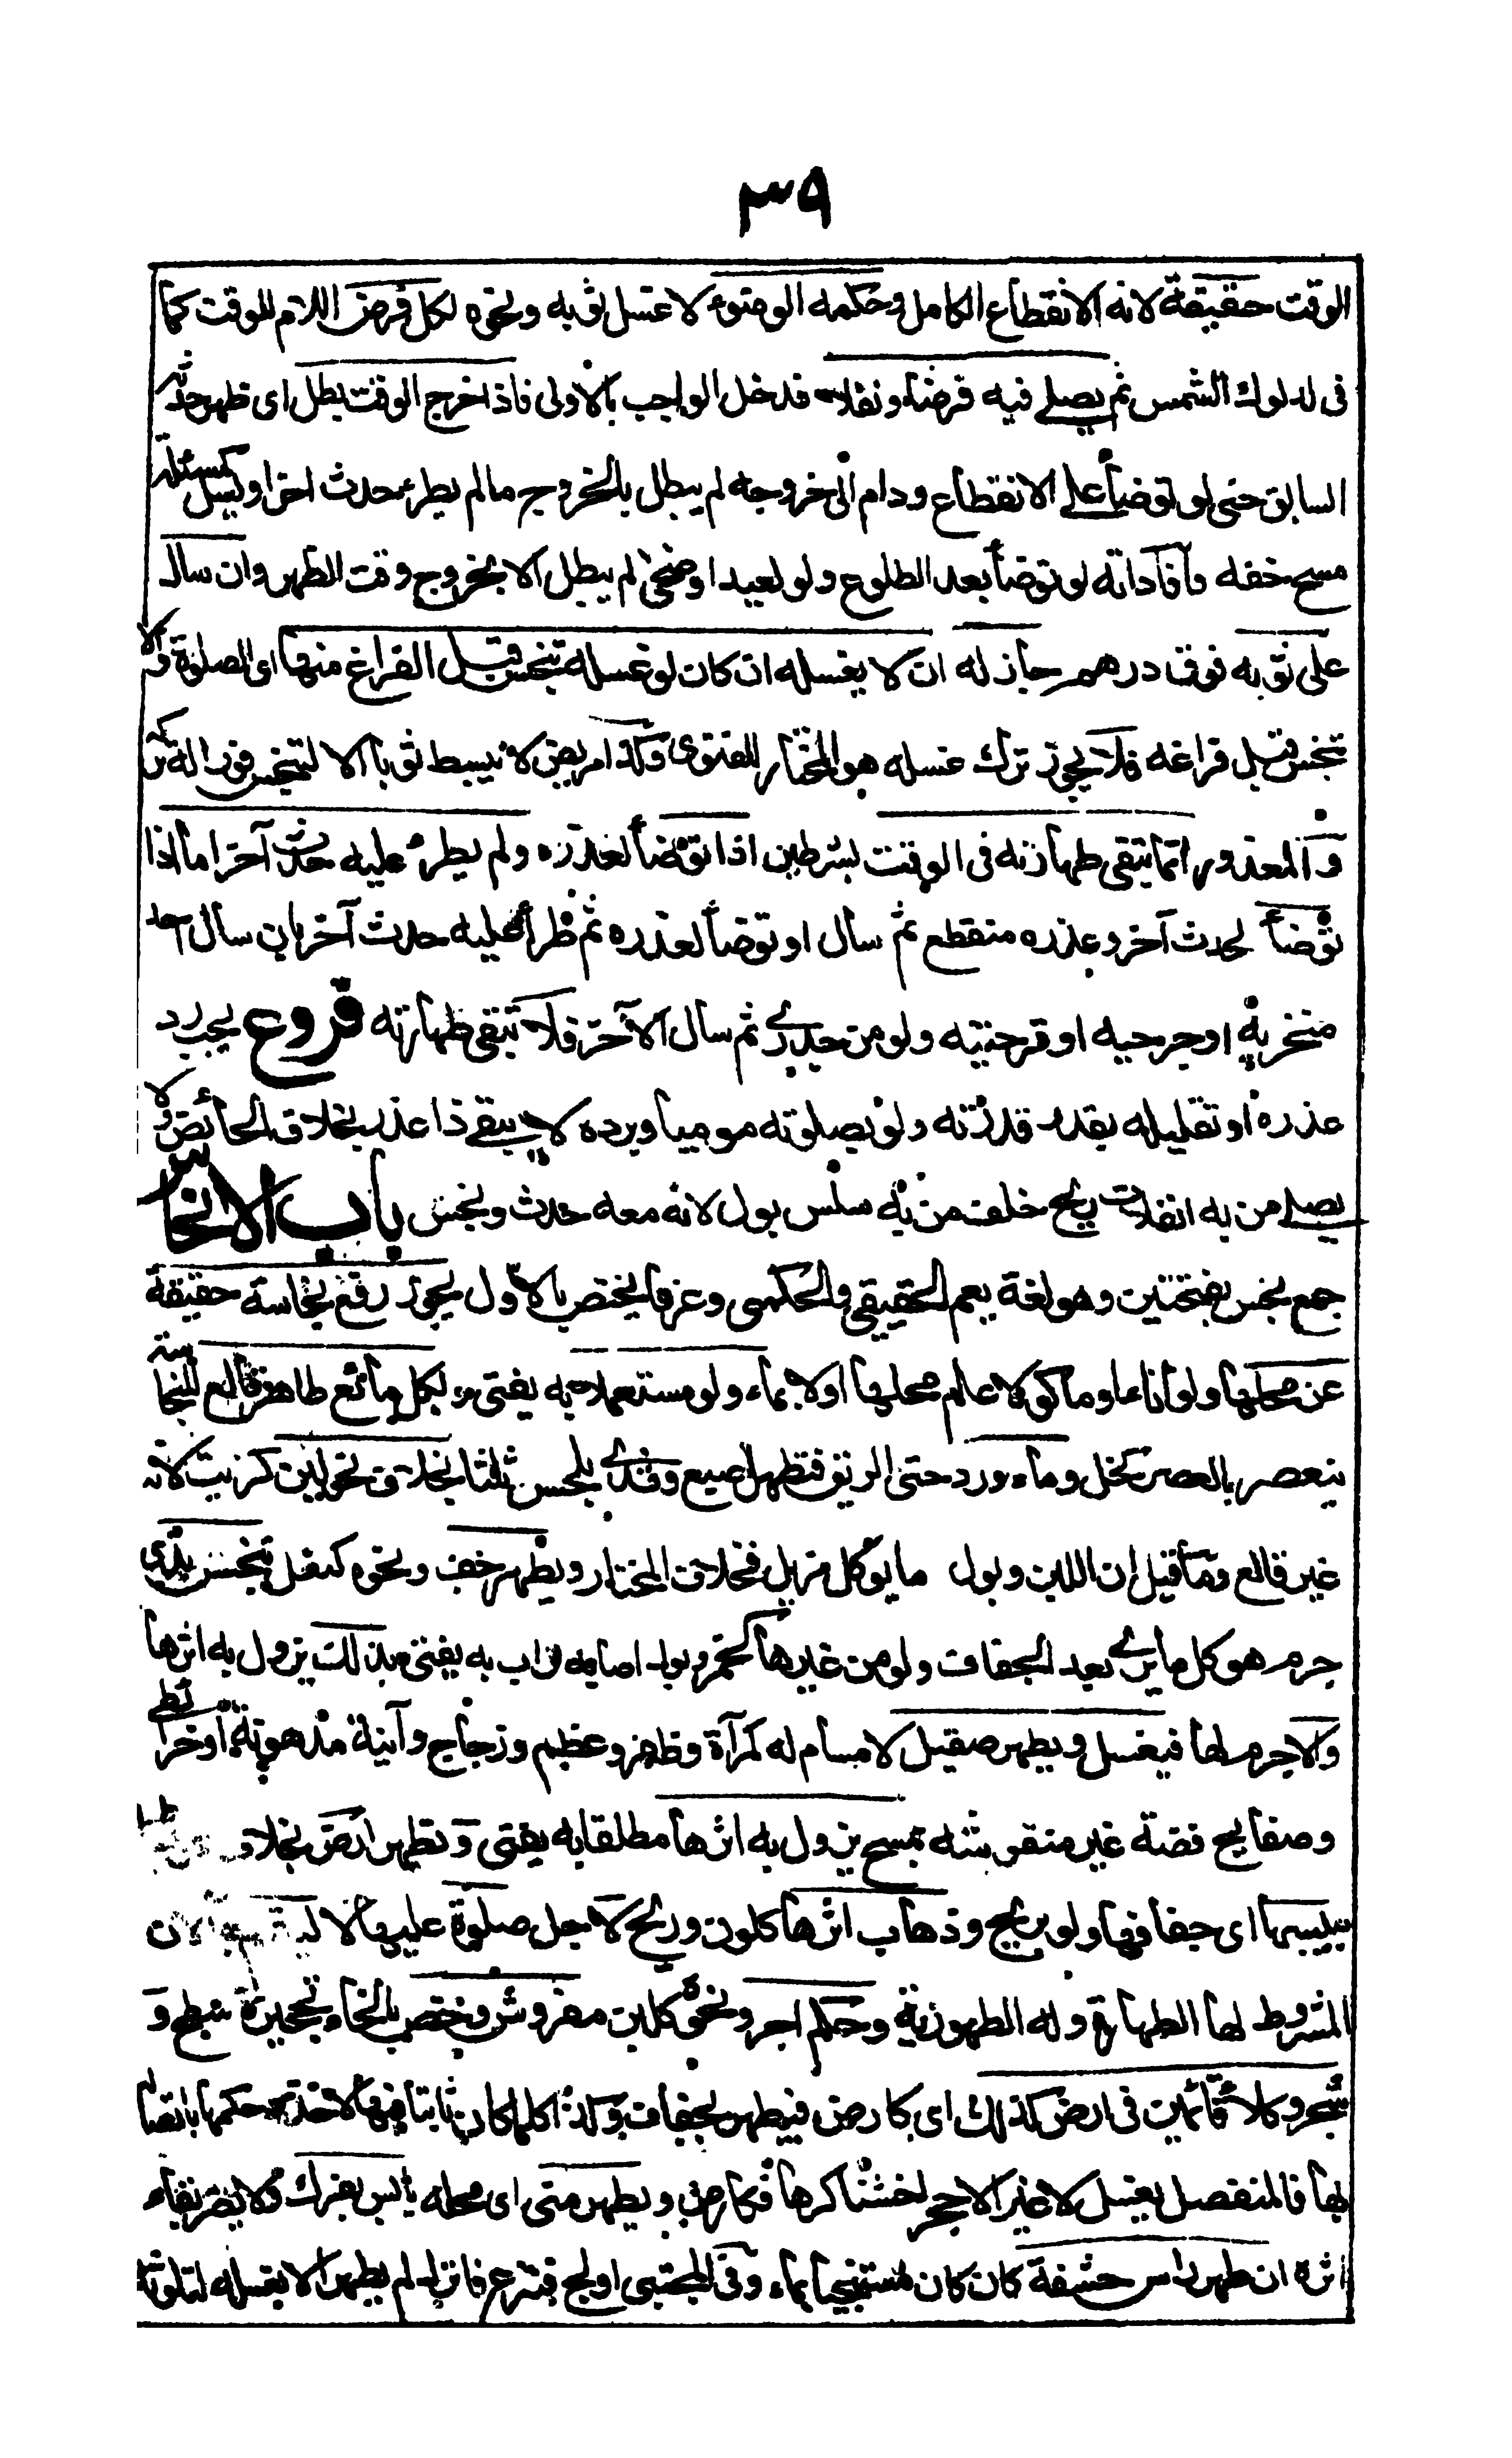 ٣٩
الوقت حقيقة لانه الانقطاع الكامل وحكمه الوضوء لا غسل ثوبه ونحوه لكل فرض اللام للوقت كما
فى لدلوك الشمس ثم يصلى فيه فرضا ونفلا فدخل الواجب بالاولى فاذا خرج الوقت بطل اى ظهر حدثه
السابق حتى لو توضأ على الانقطاع ودام الى خروجه لم يبطل بالخروج مالم يطرء حدث اخر او يسيل كمسئلة
مسح خفه وافاد انه لو توضأ بعد الطلوع ولو لعيد اوضحى لم يبطل الا بخروج وقت الظهر وان سال
على ثوبه فوق درهم جاز له ان لا يغسله ان كان لو غسله تنجس قبل الفراغ منها اى الصلوة والا
تنجس قبل فراغه فلا يجوز ترك غسله هو المختار للفتوى وكذا مريض لا يبسط ثوبا الا تنجس فورا له تركه
و المعذور انما تبقى طهارته فى الوقت بشرطين اذا توضأ لعذره ولم يطرء عليه حدث آخر اما اذا
توضأ لحدث آخر وعذره منقطع ثم سال او توضأ لعذره ثم طرأ عليه حدث آخر بان سال احد
منخريه او جرحيه او قرحتيه ولو من جدرى ثم سال الآخر فلا تبقى طهارته فروع يجب رد
عذره او تقليله بقدر قدرته ولو بصلوته موميا وبرده لا يبقى ذا عذر بخلاف الحائض ولا
يصلى من به انفلات ريح خلف من به سلس بول لانه معه حدث ونجس باب الانجاس
جمع نجس بفتحتين وهو لغة يعم الحقيقى والحكمى وعرفا يختص بالاول يجوز رفع نجاسة حقيقة
عن محلها ولو اناء او ماكولا علم محلها اولا بماء ولو مستعملا به يفتى وبكل مائع طاهر قالع للنجاسة
ينعصر بالعصر كخل وماء ورد حتى الريق فتطهر اصبع وثدى بلحس ثلثا بخلاف نحو لبن كزيت لانه
غير قالع وما قيل ان اللبن وبول ما يوكل مزيل فخلاف المختار ويطهر خف ونحوه كنعل تنجس بذى
جرم هو كل ما يرى بعد الجفاف ولو من غيرها كخمر وبول اصابه تراب به يفتى بدلك يزول به اثرها
والا جرم لها فيغسل ويطهر صقيل لا مسام له كمرآة وظفر وعظم وزجاج وآنية مدهونة او خراطى
وصفايح فضة غير منقوشة بمسح يزول به اثرها مطلقا به يفتى و تطهر ارض بخلاف
بيبسها اى جفافها ولو بريح وذهاب اثرها كلون وريح لاجل صلوة عليها لا لتيمم بها لان
المشروط لها الطهارة وله الطهورية وحكم اجر ونحوه كلبن مفروش وخص بالخاء تحجيرة سطح و
شجر وكلأ قائمين فى ارض كذلك اى كارض فيطهر بجفاف وكذا كلما كان ثابتا فيها لاخذه حكمها باتصاله
بها فالمنفصل يغسل لا غير الا حجرا خشنا كرها فكارض ويطهر منى اى محله يابس بفرك ولا يضر بقاء
اثره ان طهر راس حشفة كان كان مستنجيا بماء وفى المجتبى اولج فنزع فانزل لم يطهر الا بغسله لتلوثه